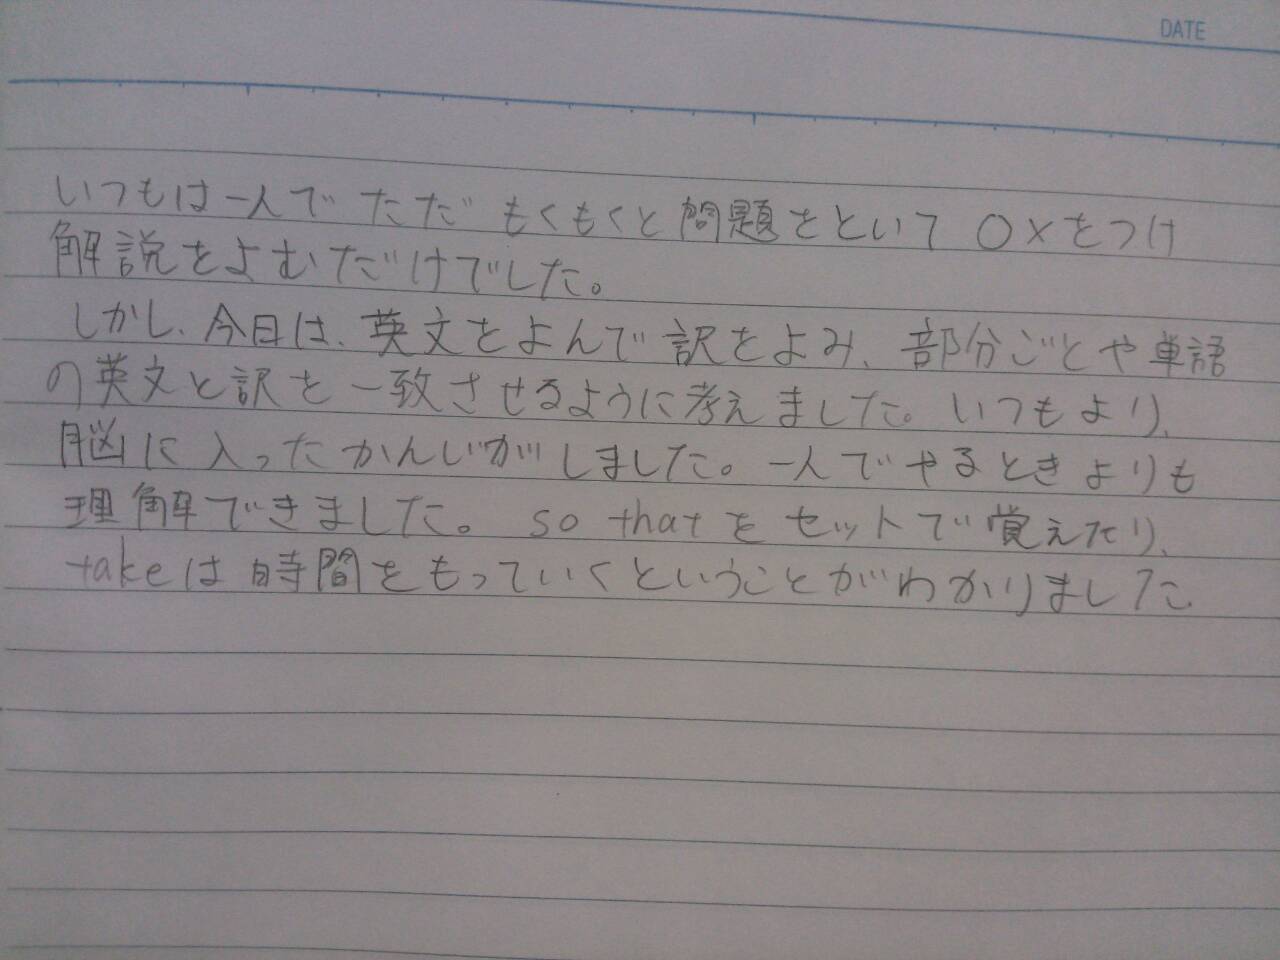 DATE
いつもは一人でただもくもくと問題をといて○×をつけ
解説をよむだけでした。
しかし、今日は、英文をよんで訳をよみ、部分ごとや単語
の英文と訳を一致させるように考えました。いつもより、
脳に入ったかんじがしました。一人でやるときよりも
理解できました。so thatをセットで覚えたり、
takeは時間をもっていくということがわかりました